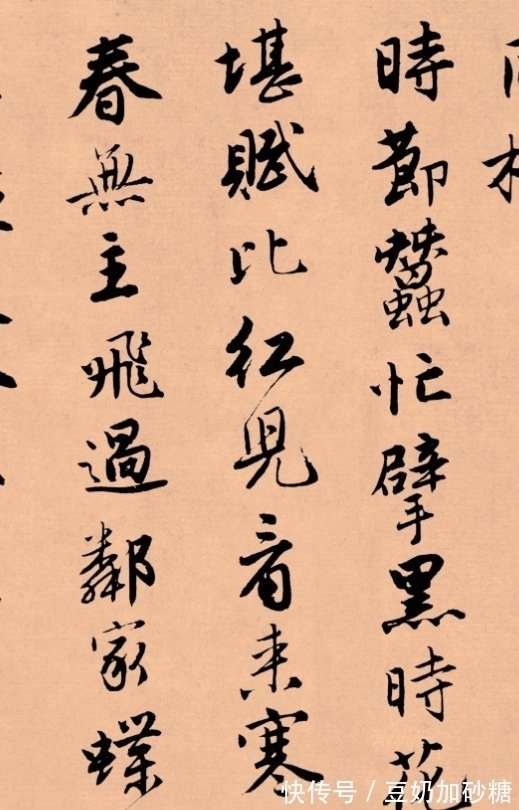 時節蠶忙擘黑時花
堪賦比紅兒看来寒
春無主飛過鄰家蝶
快传号 / 豆奶加砂糖